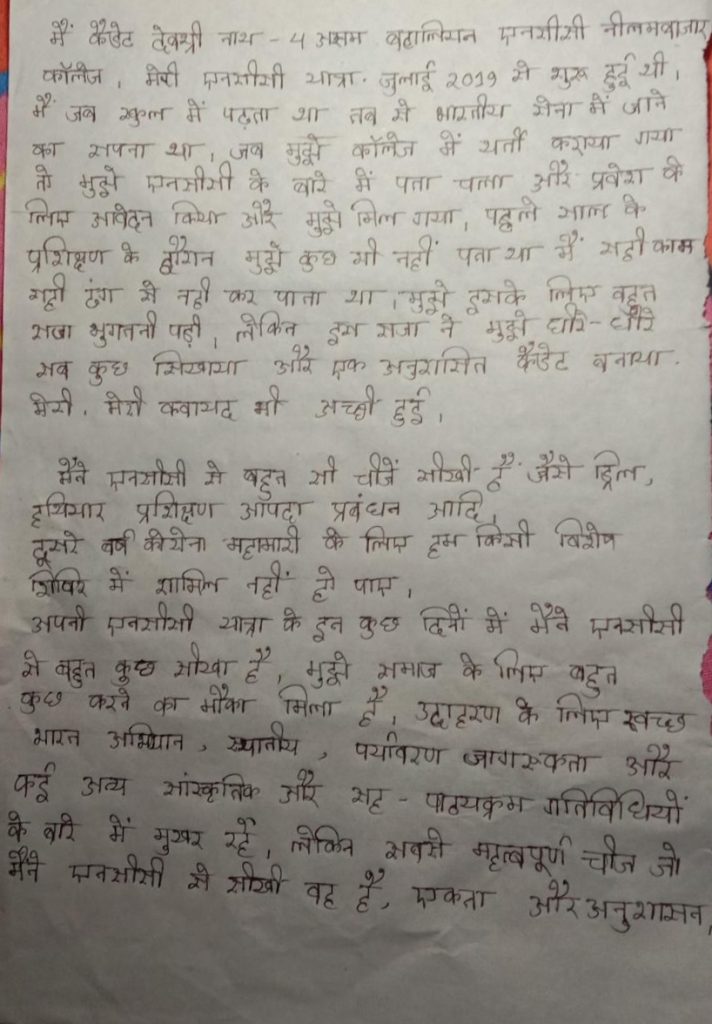 मैं कैडेट देवश्री नाथ - 4 असम बटालियन एनसीसी नीलमबाजार
कॉलेज, मेरी एनसीसी यात्रा. जुलाई 2019 से शुरू हुई थी,
मैं जब स्कुल में पढ़ता था तब से भारतीय सेना में जाने
का सपना था, जब मुझे कॉलेज में भर्ती कराया गया
तो मुझे एनसीसी के बारे में पता चला और प्रवेश के
लिए आवेदन किया और मुझे मिल गया, पहले साल के
प्रशिक्षण के दौरान मुझे कुछ भी नहीं पता था मैं सही काम
सही ढंग से नही कर पाता था, मुझे इसके लिए बहुत
सजा भुगतनी पड़ी, लेकिन इस सजा ने मुझे धीरे-धीरे
सब कुछ सिखाया और एक अनुशासित कैडेट बनाया.
मेरी. मेरी कवायद भी अच्छी हुई,
मैंने एनसीसी से बहुत सी चीजें सीखी हैं जैसे ड्रिल,
हथियार प्रशिक्षण आपदा प्रबंधन आदि,
दूसरे वर्ष कोरोना महामारी के लिए हम किसी विशेष
शिविर में शामिल नहीं हो पाए,
अपनी एनसीसी यात्रा के इन कुछ दिनों में मैंने एनसीसी
से बहुत कुछ सीखा है, मुझे समाज के लिए बहुत
कुछ करने का मौका मिला है, उदाहरण के लिए स्वच्छ
भारत अभियान, स्थानीय, पर्यावरण जागरुकता और
कई अन्य सांस्कृतिक और सह - पाठ्यक्रम गतिविधियों
के बारे में मुखर रहें, लेकिन सबसे महत्वपूर्ण चीज जो
मैंने एनसीसी से सीखी वह है, एकता और अनुशासन,